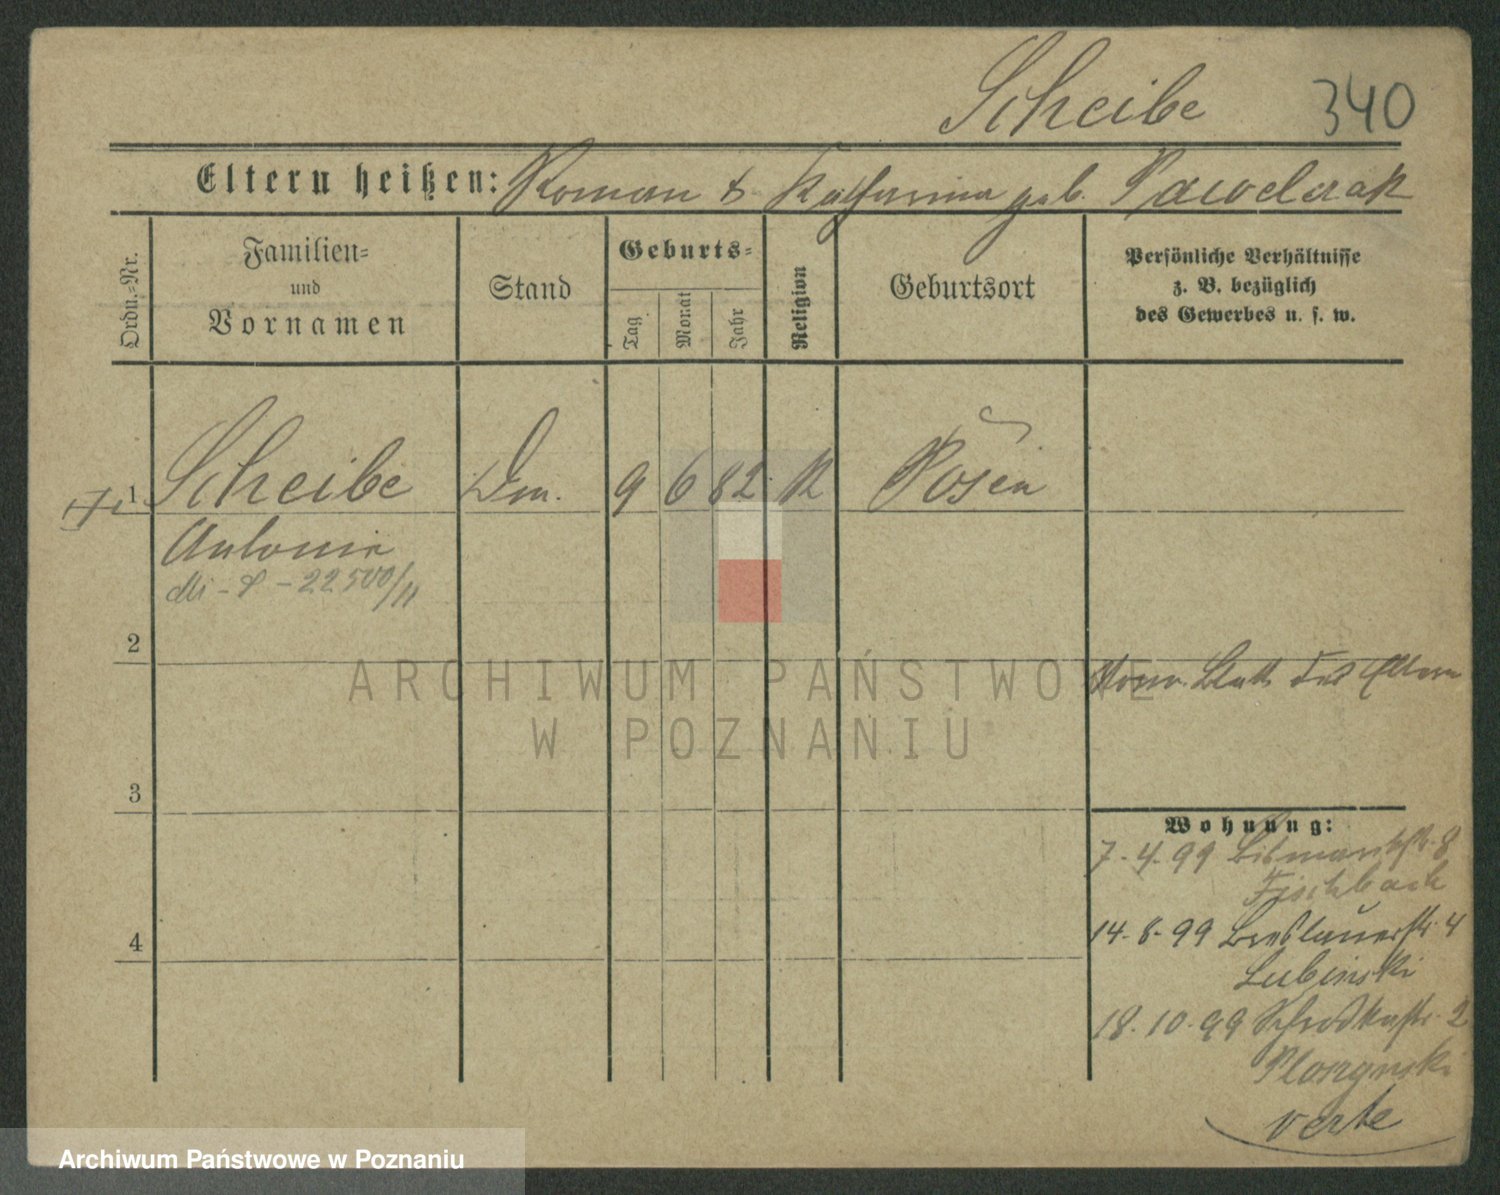 Scheibe 340
Eltern heißen: Roman & Katharina geb. Pawelczak
Ordn.-Nr.
Familien-
und
Vornamen
Stand
Geburts-
Tag
Monat
Jahr
Religion
Geburtsort
Persönliche Verhältnisse
z. B. bezüglich
des Gewerbes u. s. w.
1 Scheibe 9 6 82 K Posen
Antonie
22500/11
2
Blatt der Eltern
3
Wohnung:
7-4-99 Bismarckstr. 8
Fischbach
14-8-99 Breslauerstr. 4
4
Lubinski
18.10.99 Schrodkastr. 2
verte
ARCHIWUM PAŃSTWOWE
W POZNANIU
Archiwum Państwowe w Poznaniu